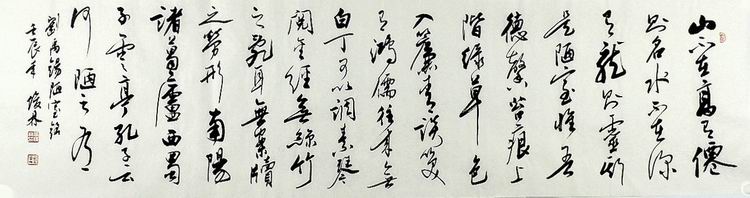 山不在高有僊
則名水不在深
有龍則靈斯
是陋室惟吾
德馨苔痕上
階緑草色
入簾青談笑
有鴻儒往来無
白丁可以調素琴
閱金經無絲竹
之亂耳無案牘
之勞形南陽
諸葛廬西蜀
子雲亭孔子云
何陋之有
劉禹錫陋室銘
壬辰年